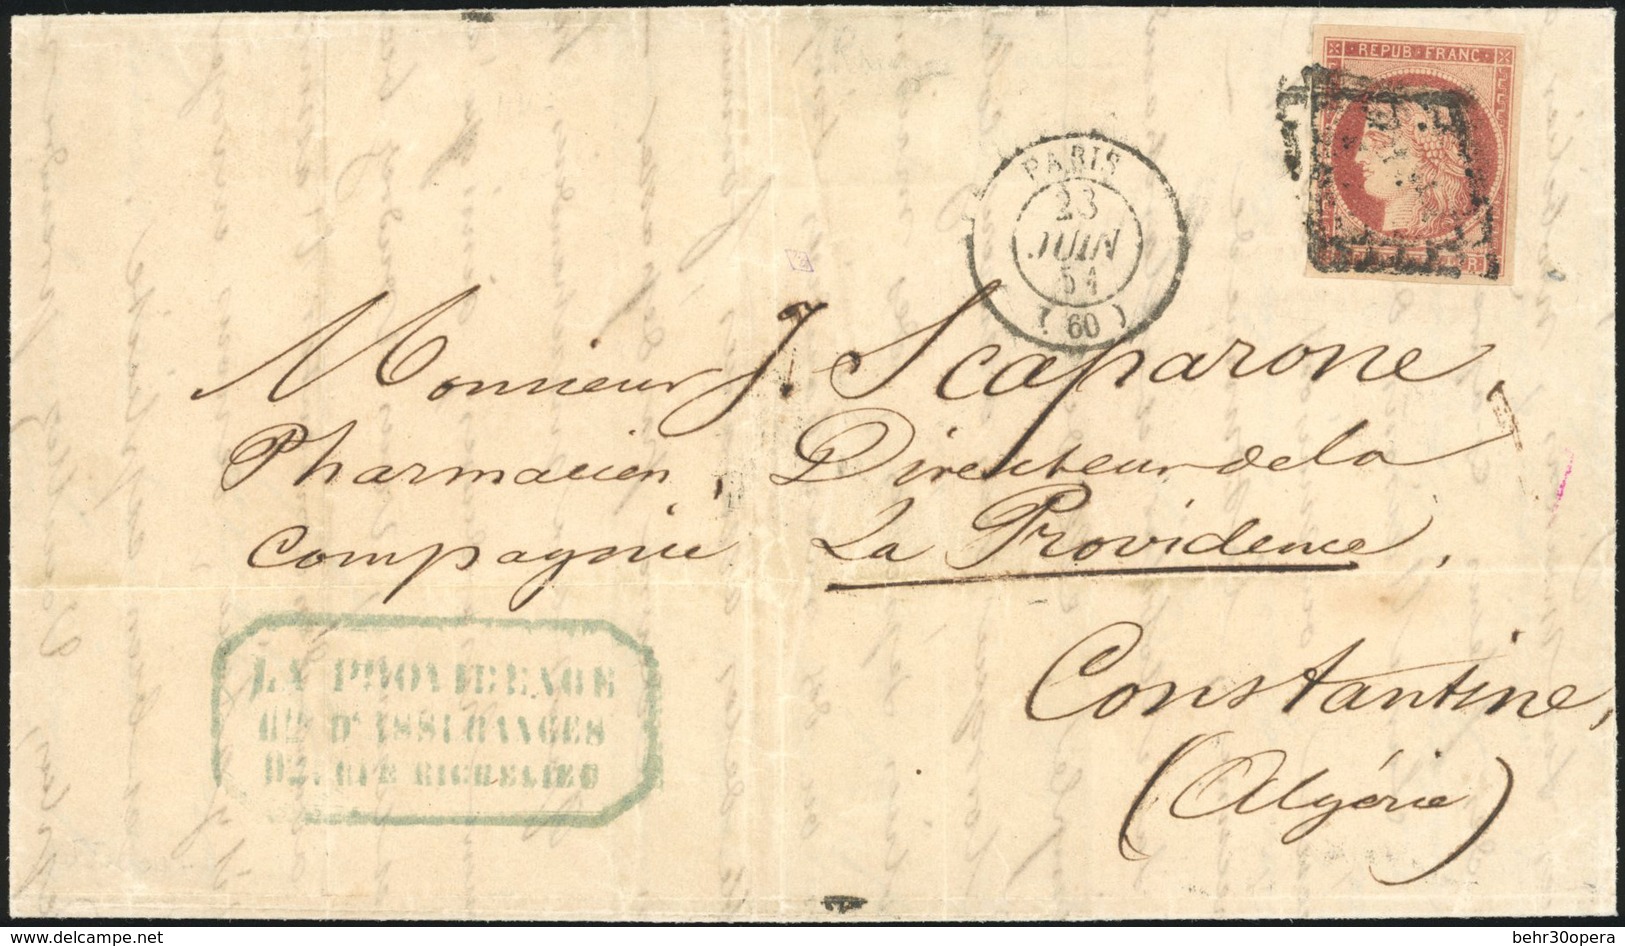 REPUB · FRANC ·
PARIS
23
JUIN
51
( 60 )
Monsieur J. Scaparone,
Pharmacien, Directeur de la
Compagnie La Providence,
Constantine,
(Algérie)
LA PROVIDENCE
CIE D'ASSURANCES
RUE RICHELIEU
www.delcampe.net
behr30opera